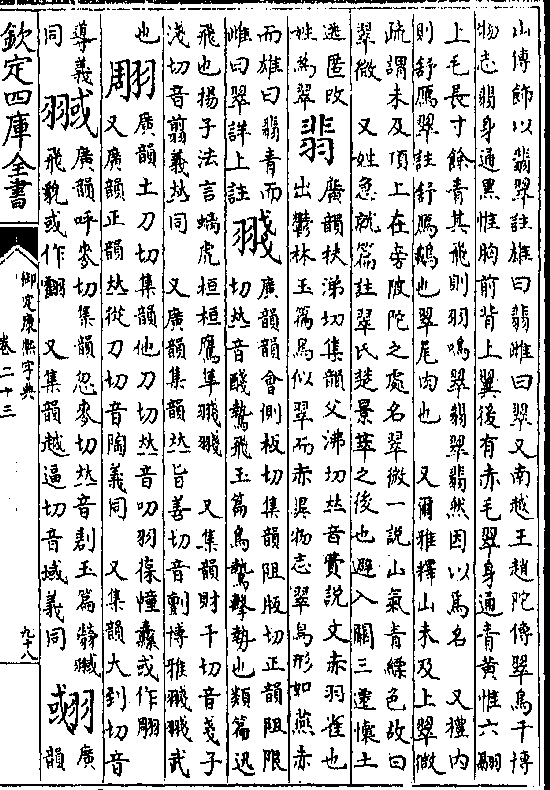 山傳飾以翡翠註雄曰翡雌曰翠又南越王趙陀傳翠鳥千博
物志翡身通黑惟胸前背上翼後有赤毛翠身通青黃惟六翮
上毛長寸餘青其飛則羽鳴翠翡翠翡然因以爲名 又禮内
則舒鴈翠註舒鴈鵝也翠尾肉也 又爾雅釋山未及上翠微
疏謂未及頂上在旁陂陀之處名翠微一說山氣青縹色故曰
翠微 又姓急就篇註翠氏楚景萃之後也避入關三遷懷土
逃匿改
姓爲翠
翡
廣韻扶涕切集韻父沸切𠀤音費説文赤羽雀也
出鬱林玉篇鳥似翠而赤異物志翠鳥形如燕赤
而雄曰翡青而
雌曰翠詳上註
䎒
廣韻韻會側板切集韻阻版切正韻阻限
切𠀤音醆鷙飛玉篇鳥鷙擊勢也類篇迅
飛也揚子法言螭虎桓桓鷹隼䎒䎒 又集韻財干切音戔子
淺切音翦義𠀤同 又廣韻集韻𠀤旨善切音劗博雅䎒䎒武
也
翢
廣韻土刀切集韻他刀切𠀤音叨羽葆幢纛或作翢
又廣韻正韻𠀤從刀切音陶義同 又集韻大到切音
導義
同
䎉
廣韻呼麥切集韻忽麥切𠀤音剨玉篇䎉䎉
飛貌或作翻 又集韻越逼切音域義同
䎉
廣
韻
欽定四庫全書
御定康熙字典
卷二十三
九十八